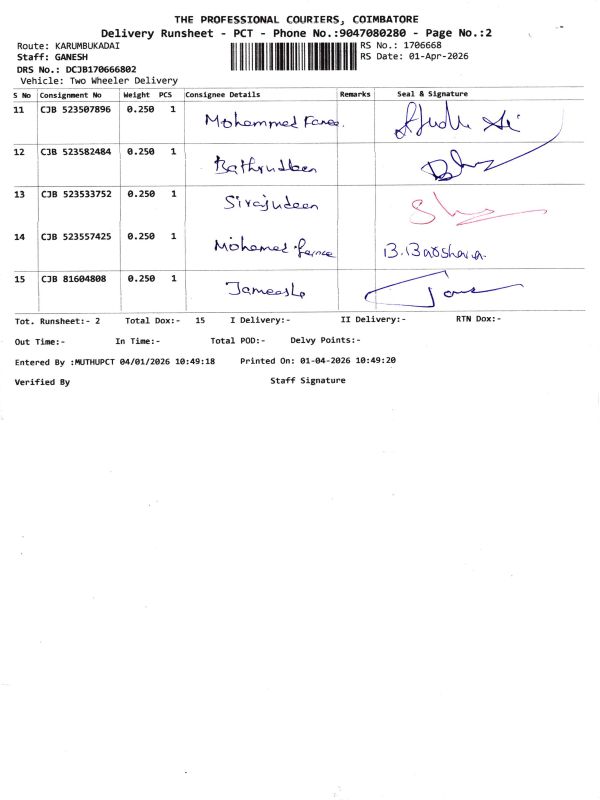 THE PROFESSIONAL COURIERS, COIMBATORE
Delivery Runsheet - PCT - Phone No.:9047080280 - Page No.:2
Route: KARUMBUKADAI RS No.: 1706668
Staff: GANESH RS Date: 01-Apr-2026
DRS No.: DCJB170666802
Vehicle: Two Wheeler Delivery
S No Consignment No Weight PCS Consignee Details Remarks Seal & Signature
11 CJB 523507896 0.250 1 Mohammed
12 CJB 523582484 0.250 1
13 CJB 523533752 0.250 1 Sirajudeen
14 CJB 523557425 0.250 1 Mohamed
15 CJB 81604808 0.250 1
Tot. Runsheet:- 2 Total Dox:- 15 I Delivery:- II Delivery:- RTN Dox:-
Out Time:- In Time:- Total POD:- Delvy Points:-
Entered By :MUTHUPCT 04/01/2026 10:49:18 Printed On: 01-04-2026 10:49:20
Verified By Staff Signature